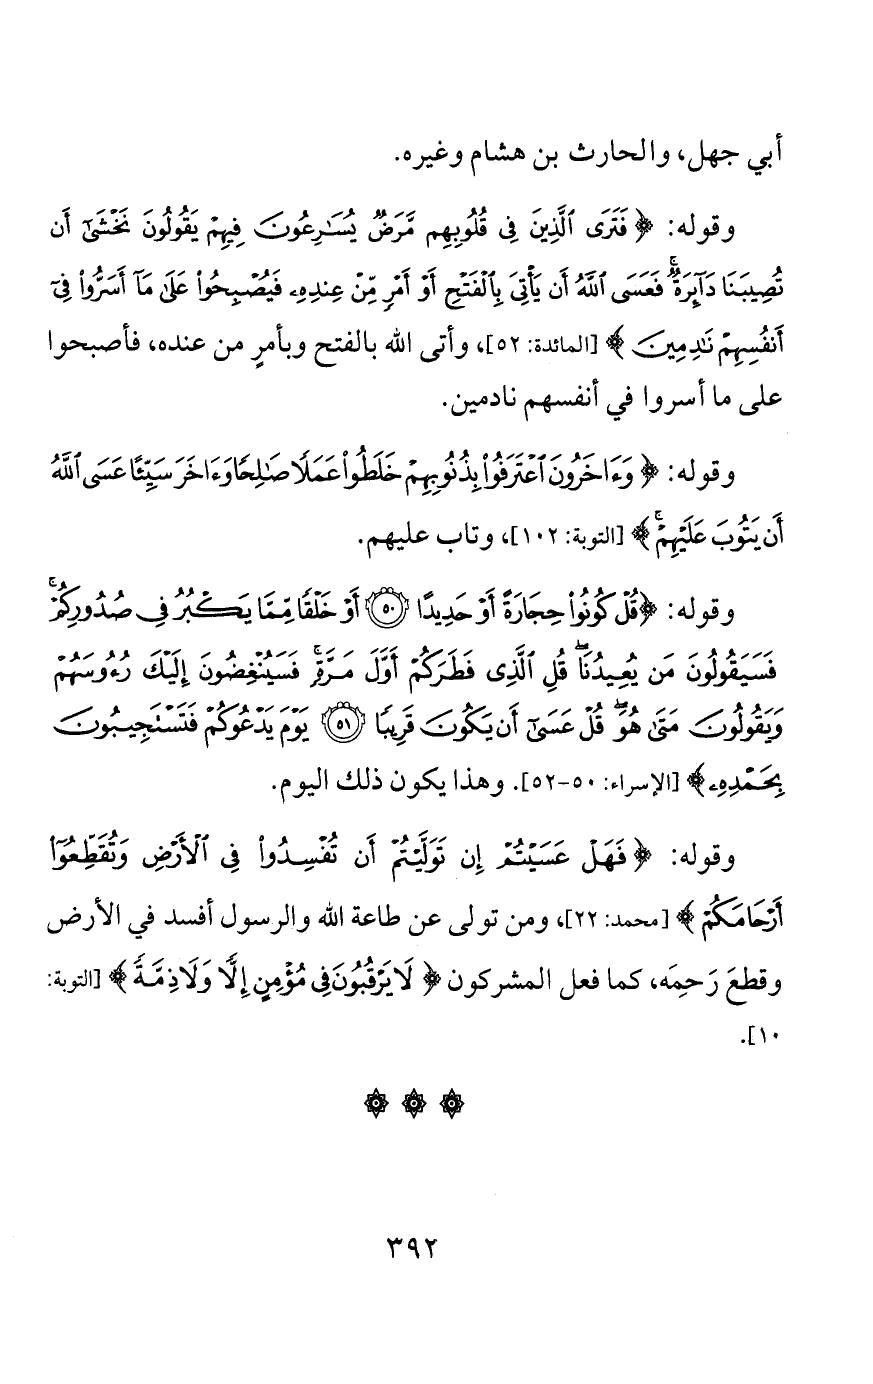 أبي جهل، والحارث بن هشام وغيره.
وقوله: ﴿ فَتَرَى ٱلَّذِينَ فِى قُلُوبِهِم مَّرَضٌ يُسَـٰرِعُونَ فِيهِمْ يَقُولُونَ نَخْشَىٰٓ أَن
تُصِيبَنَا دَآئِرَةٌ ۚ فَعَسَى ٱللَّهُ أَن يَأْتِىَ بِٱلْفَتْحِ أَوْ أَمْرٍ مِّنْ عِندِهِۦ فَيُصْبِحُوا۟ عَلَىٰ مَآ أَسَرُّوا۟ فِىٓ
أَنفُسِهِمْ نَـٰدِمِينَ ﴾ [المائدة: ٥٢]، وأتى الله بالفتح وبأمرٍ من عنده، فأصبحوا
على ما أسروا في أنفسهم نادمين.
وقوله: ﴿ وَءَاخَرُونَ ٱعْتَرَفُوا۟ بِذُنُوبِهِمْ خَلَطُوا۟ عَمَلًا صَـٰلِحًا وَءَاخَرَ سَيِّئًا عَسَى ٱللَّهُ
أَن يَتُوبَ عَلَيْهِمْ ۚ ﴾ [التوبة: ١٠٢]، وتاب عليهم.
وقوله: ﴿قُلْ كُونُوا۟ حِجَارَةً أَوْ حَدِيدًا ٥٠ أَوْ خَلْقًا مِّمَّا يَكْبُرُ فِى صُدُورِكُمْ ۚ
فَسَيَقُولُونَ مَن يُعِيدُنَا ۖ قُلِ ٱلَّذِى فَطَرَكُمْ أَوَّلَ مَرَّةٍ ۚ فَسَيُنْغِضُونَ إِلَيْكَ رُءُوسَهُمْ
وَيَقُولُونَ مَتَىٰ هُوَ ۖ قُلْ عَسَىٰٓ أَن يَكُونَ قَرِيبًا ٥١ يَوْمَ يَدْعُوكُمْ فَتَسْتَجِيبُونَ
بِحَمْدِهِۦ ﴾ [الإسراء: ٥٠-٥٢]. وهذا يكون ذلك اليوم.
وقوله: ﴿ فَهَلْ عَسَيْتُمْ إِن تَوَلَّيْتُمْ أَن تُفْسِدُوا۟ فِى ٱلْأَرْضِ وَتُقَطِّعُوٓا۟
أَرْحَامَكُمْ ﴾ [محمد: ٢٢]، ومن تولى عن طاعة الله والرسول أفسد في الأرض
وقطعَ رَحِمَه، كما فعل المشركون ﴿ لَا يَرْقُبُونَ فِى مُؤْمِنٍ إِلًّا وَلَا ذِمَّةً ﴾ [التوبة:
١٠].
٣٩٢